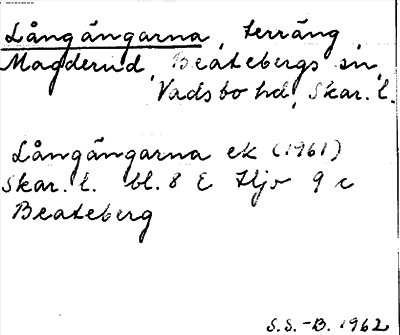 Långängarna, terräng,
Magderud, Beatebergs sn,
Vadsbo hd, Skar. l.
Långängarna ek (1961)
Skar. l. bl. 8 E Hjo 9 c
Beateberg
S.S.-B. 1962